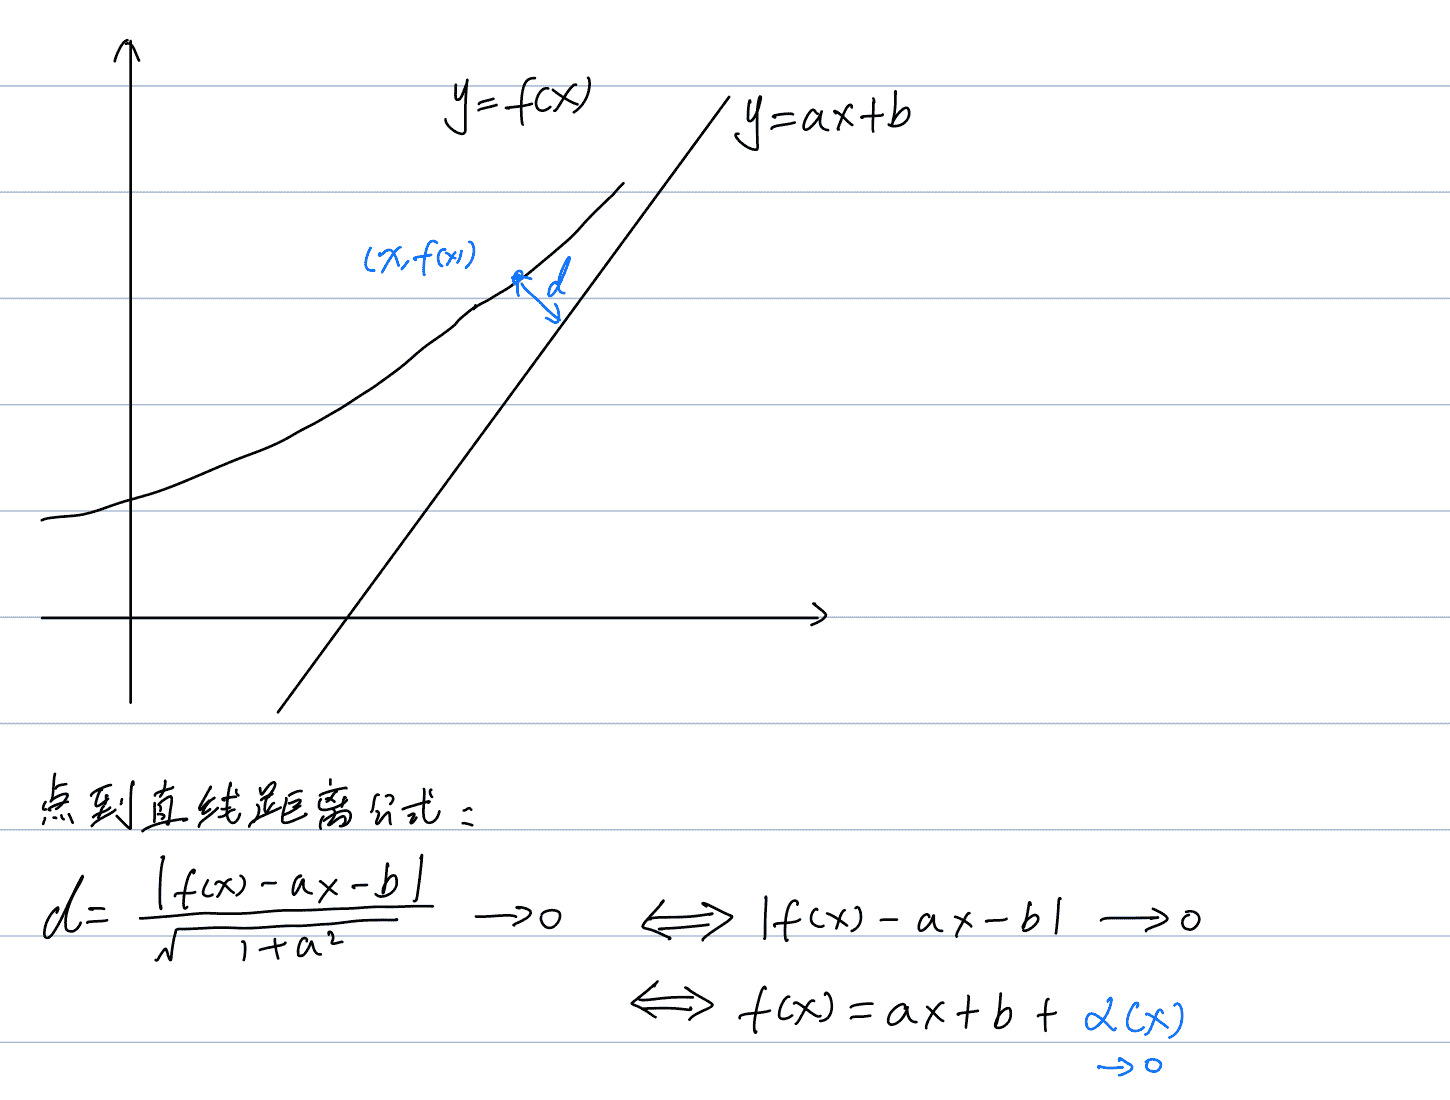 y=f(x)
y=ax+b
(x,f(x))
d
点到直线距离公式：
d= |f(x)-ax-b| / √1+a² →0 ⟺ |f(x)-ax-b| →0
⟺ f(x)=ax+b+α(x)
→0